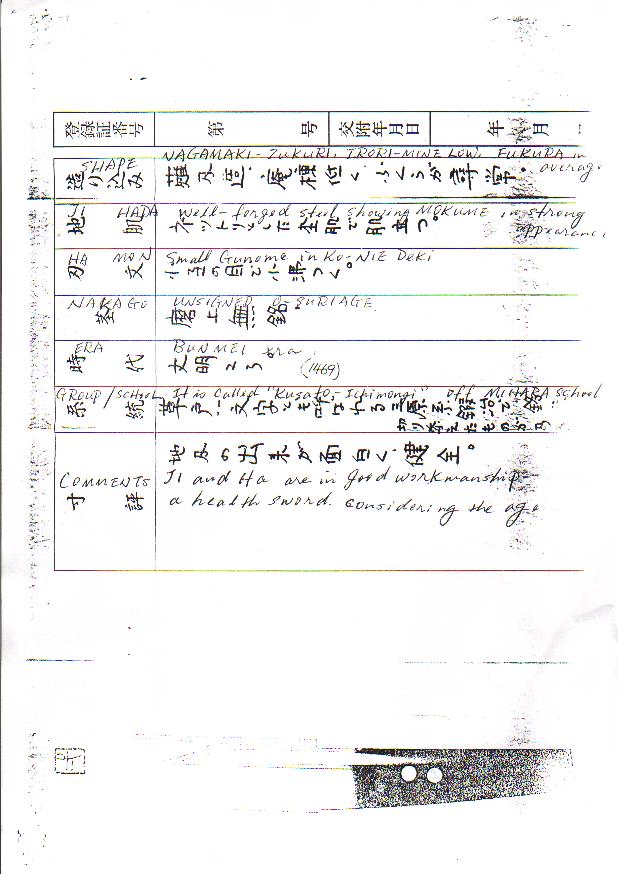 登録証番号 第 号 交附年月日 年 月
SHAPE
造り込み
NAGAMAKI-ZUKURI, IRORI-MINE LOW, FUKURA in average
庵棟低く ふくらが尋常。
JI HADA
地 肌
Well-forged steel showing MOKUME in strong appearance,
ネットリとした
で肌立つ。
HA MON
刃 文
Small Gunome in Ko-NIE DeKi
小互の目で小沸つく。
NAKAGO
茎
UNSIGNED O-SURIAGE
磨上無銘。
ERA
時 代
BUNMEI era
文明ころ (1469)
Group/School
系 統
It is called "Kusato, Ichimonji" off MIHARA school
草戸一文字とも呼ばれる三原系
COMMENTS
寸 評
地刃の出来が面白く健全。
JI and Ha are in good workmanship
a health sword. Considering the age